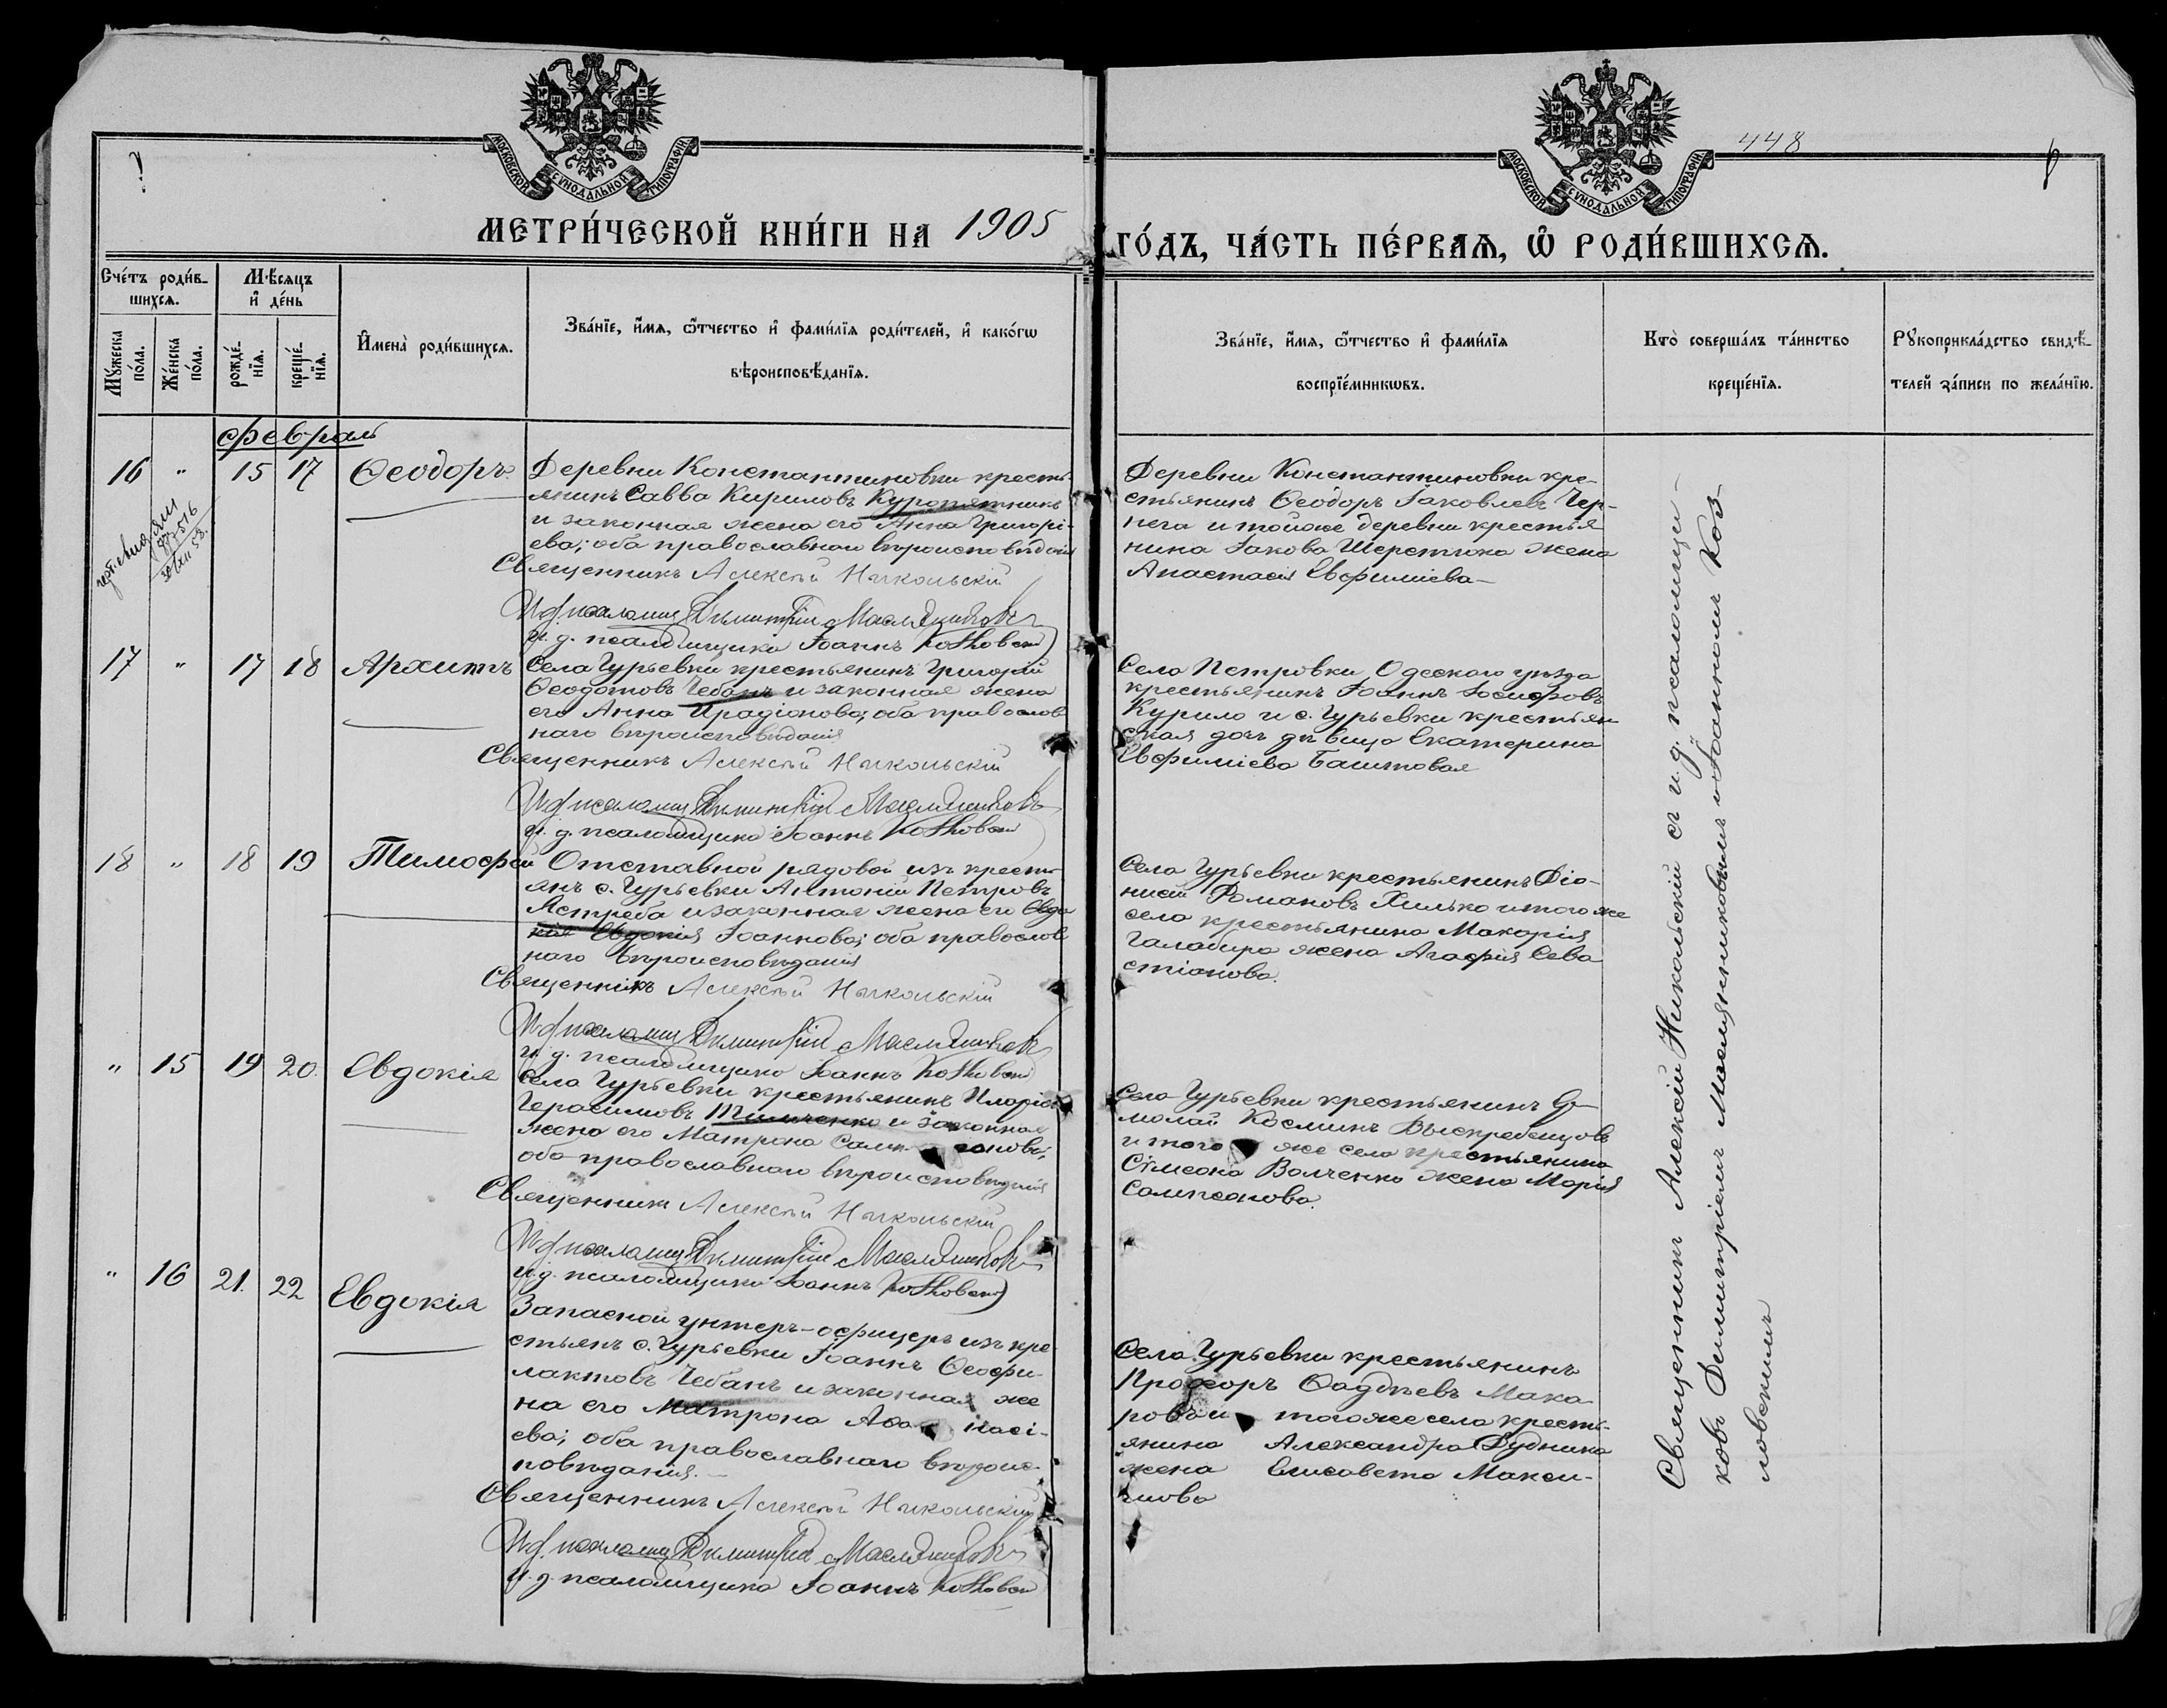 448
МОСКОВСКОЙ СѴНОДАЛЬНОЙ ТИПОГРАФІИ
МОСКОВСКОЙ СѴНОДАЛЬНОЙ ТИПОГРАФІИ
МЕТРИ́ЧЕСКОЙ КНИ́ГИ НА 1905 ГО́ДЪ, ЧА́СТЬ ПЕ́РВАЯ, Ѡ҆ РОДИ́ВШИХСѦ.
Сче́тъ роди́в-
шихсѧ.
Мꙋ́жеска по́ла.
Же́нска по́ла.
Мѣ́сяцъ
и҆ де́нь
рожде́-
нїѧ.
креще́-
нїѧ.
И҆мена̀ роди́вшихсѧ.
Зва́нїе, и҆́мѧ, ѻ҆́тчество и҆ фами́лїѧ роди́телей, и҆ како́гѡ
вѣроисповѣ́данїѧ.
Зва́нїе, и҆́мѧ, ѻ҆́тчество и҆ фами́лїѧ
воспрїе́мникѡвъ.
Кто̀ соверша́лъ та́инство
креще́нїѧ.
Рꙋкоприкла́дство свидѣ́-
телей за́писи по жела́нїю.
февраль
16 " 15 17 Ѳеодоръ
Деревни Константиновки кресть-
янинъ Савва Кириловъ Куропятникъ
и законная жена его Анна Григорі-
ева; оба православнаго вѣроисповѣданія
Священникъ Алексѣй Никольскій
И. д. псаломщ. Димитрій Маслянниковъ
и. д. псаломщика Іоаннъ Козловскій
Деревни Константиновки кре-
стьянинъ Ѳеодоръ Іаковлевъ Чер-
нега и тойже деревни крестья-
нина Іакова Шеретика жена
Анастасія Евфиміева
17 " 17 18 Архипъ
Села Гурьевки крестьянинъ Григорій
Ѳеодотовъ Чебанъ и законная жена
его Анна Иродіонова; оба православ
наго вѣроисповѣданія
Священникъ Алексѣй Никольскій
И. д. псаломщ. Димитрій Маслянниковъ
и. д. псаломщика Іоаннъ Козловскій
Села Петровки Одескаго уѣзда
крестьянинъ Іоаннъ Іосифовъ
Курило и с. Гурьевки крестьян-
ская дочь дѣвица Екатерина
Евфиміева Баштовая
18 " 18 19 Тимофей
Отставной рядовой изъ кресть
янъ с. Гурьевки Антоній Петровъ
Ястреба и законная жена его Евдо
кія Евдокія Іоаннова; оба православ
наго вѣроисповѣданія
Священникъ Алексѣй Никольскій
И. д. псаломщ. Димитрій Маслянниковъ
и. д. псаломщика Іоаннъ Козловскій
Села Гурьевки крестьянинъ Діо-
нисій Романовъ Хилько и того же
села крестьянина Макарія
Галабира жена Агафія Сева
стіанова.
" 15 19 20. Евдокія
Села Гурьевки крестьянинъ Иларіонъ
Герасимовъ Тимченко и законная
жена его Матрона Самп
оба православнаго вѣроисповѣданія
Священникъ Алексѣй Никольскій
И. д. псаломщ. Димитрій Маслянниковъ
и. д. псаломщика Іоаннъ Козловскій
Села Гурьевки крестьянинъ Ер-
молай Косминъ Выскребенцовъ
и того же села крестьянина
Сѵмеона Волченко жена Марія
Сампсонова.
" 16 21. 22 Евдокія
Запасной унтеръ-офицеръ изъ кре
стьянъ с. Гурьевки Іоаннъ Ѳеофи-
лактовъ Чебанъ и законная же
на его Матрона Аѳанасі-
ева; оба православнаго вѣроис-
повѣданія.
Священникъ Алексѣй Никольскій
И. д. псаломщ. Димитрій Маслянниковъ
и. д. псаломщика Іоаннъ Козловскій
Села Гурьевки крестьянинъ
Прохоръ Ѳаддѣевъ Мака
ровъ и того же села кресть-
янина Александра Дудника
жена Елисавета Макси-
мова
Священникъ Алексѣй Никольскій съ и. д. псаломщи-
ковъ Димитріемъ Маслянниковымъ и Іоанномъ Коз-
ловскимъ